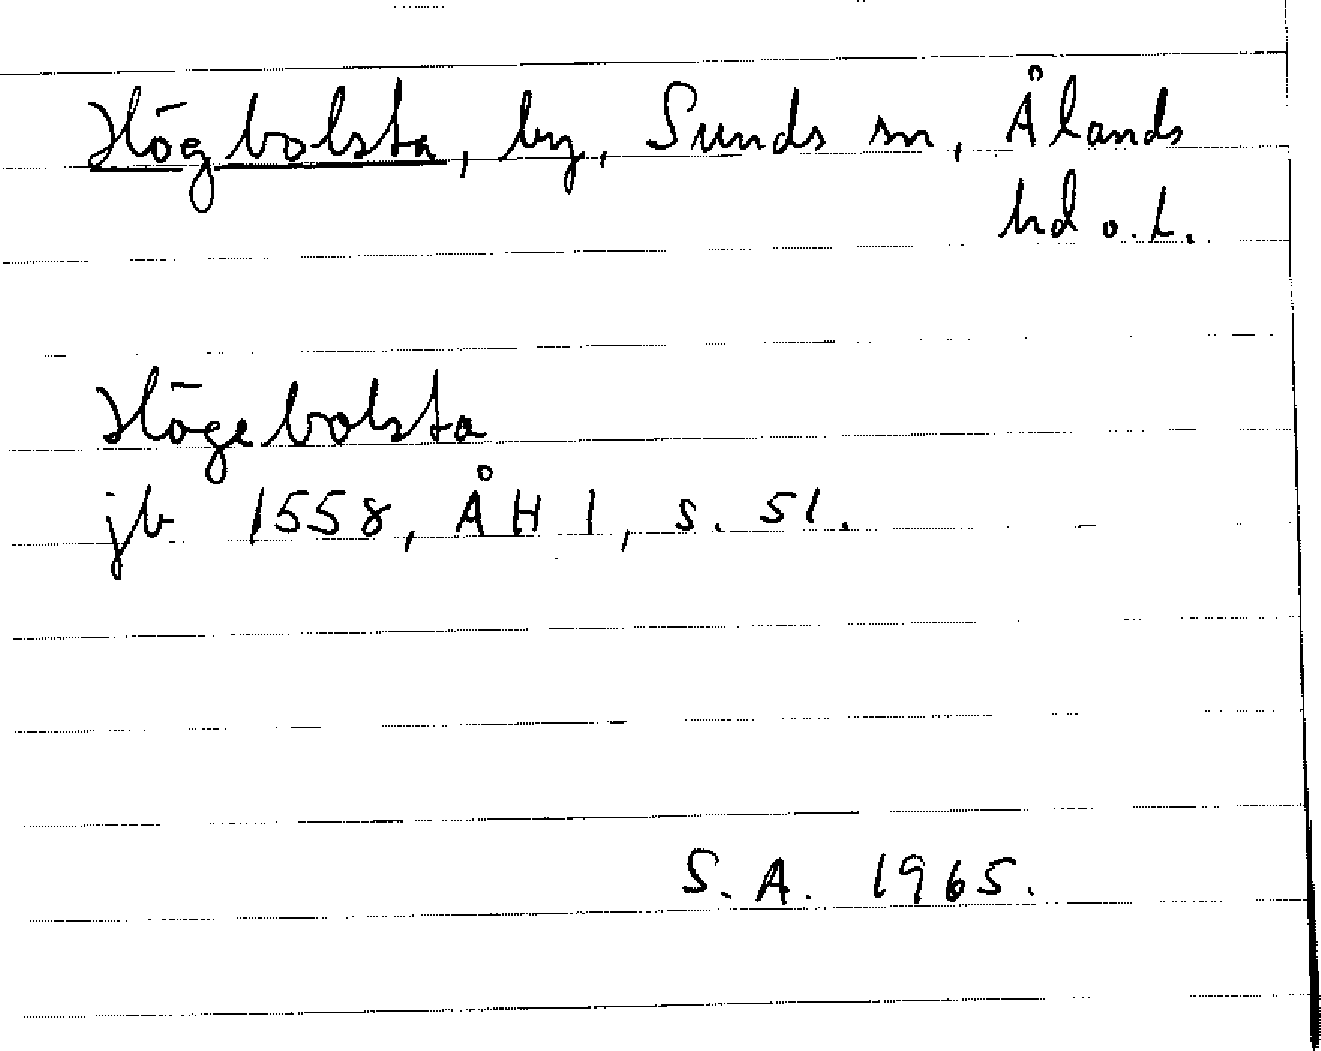 Högbolsta, by, Sunds sn, Ålands
hd o. L.
Högebolsta
jb 1558, ÅH 1, s. 51.
S.A. 1965.